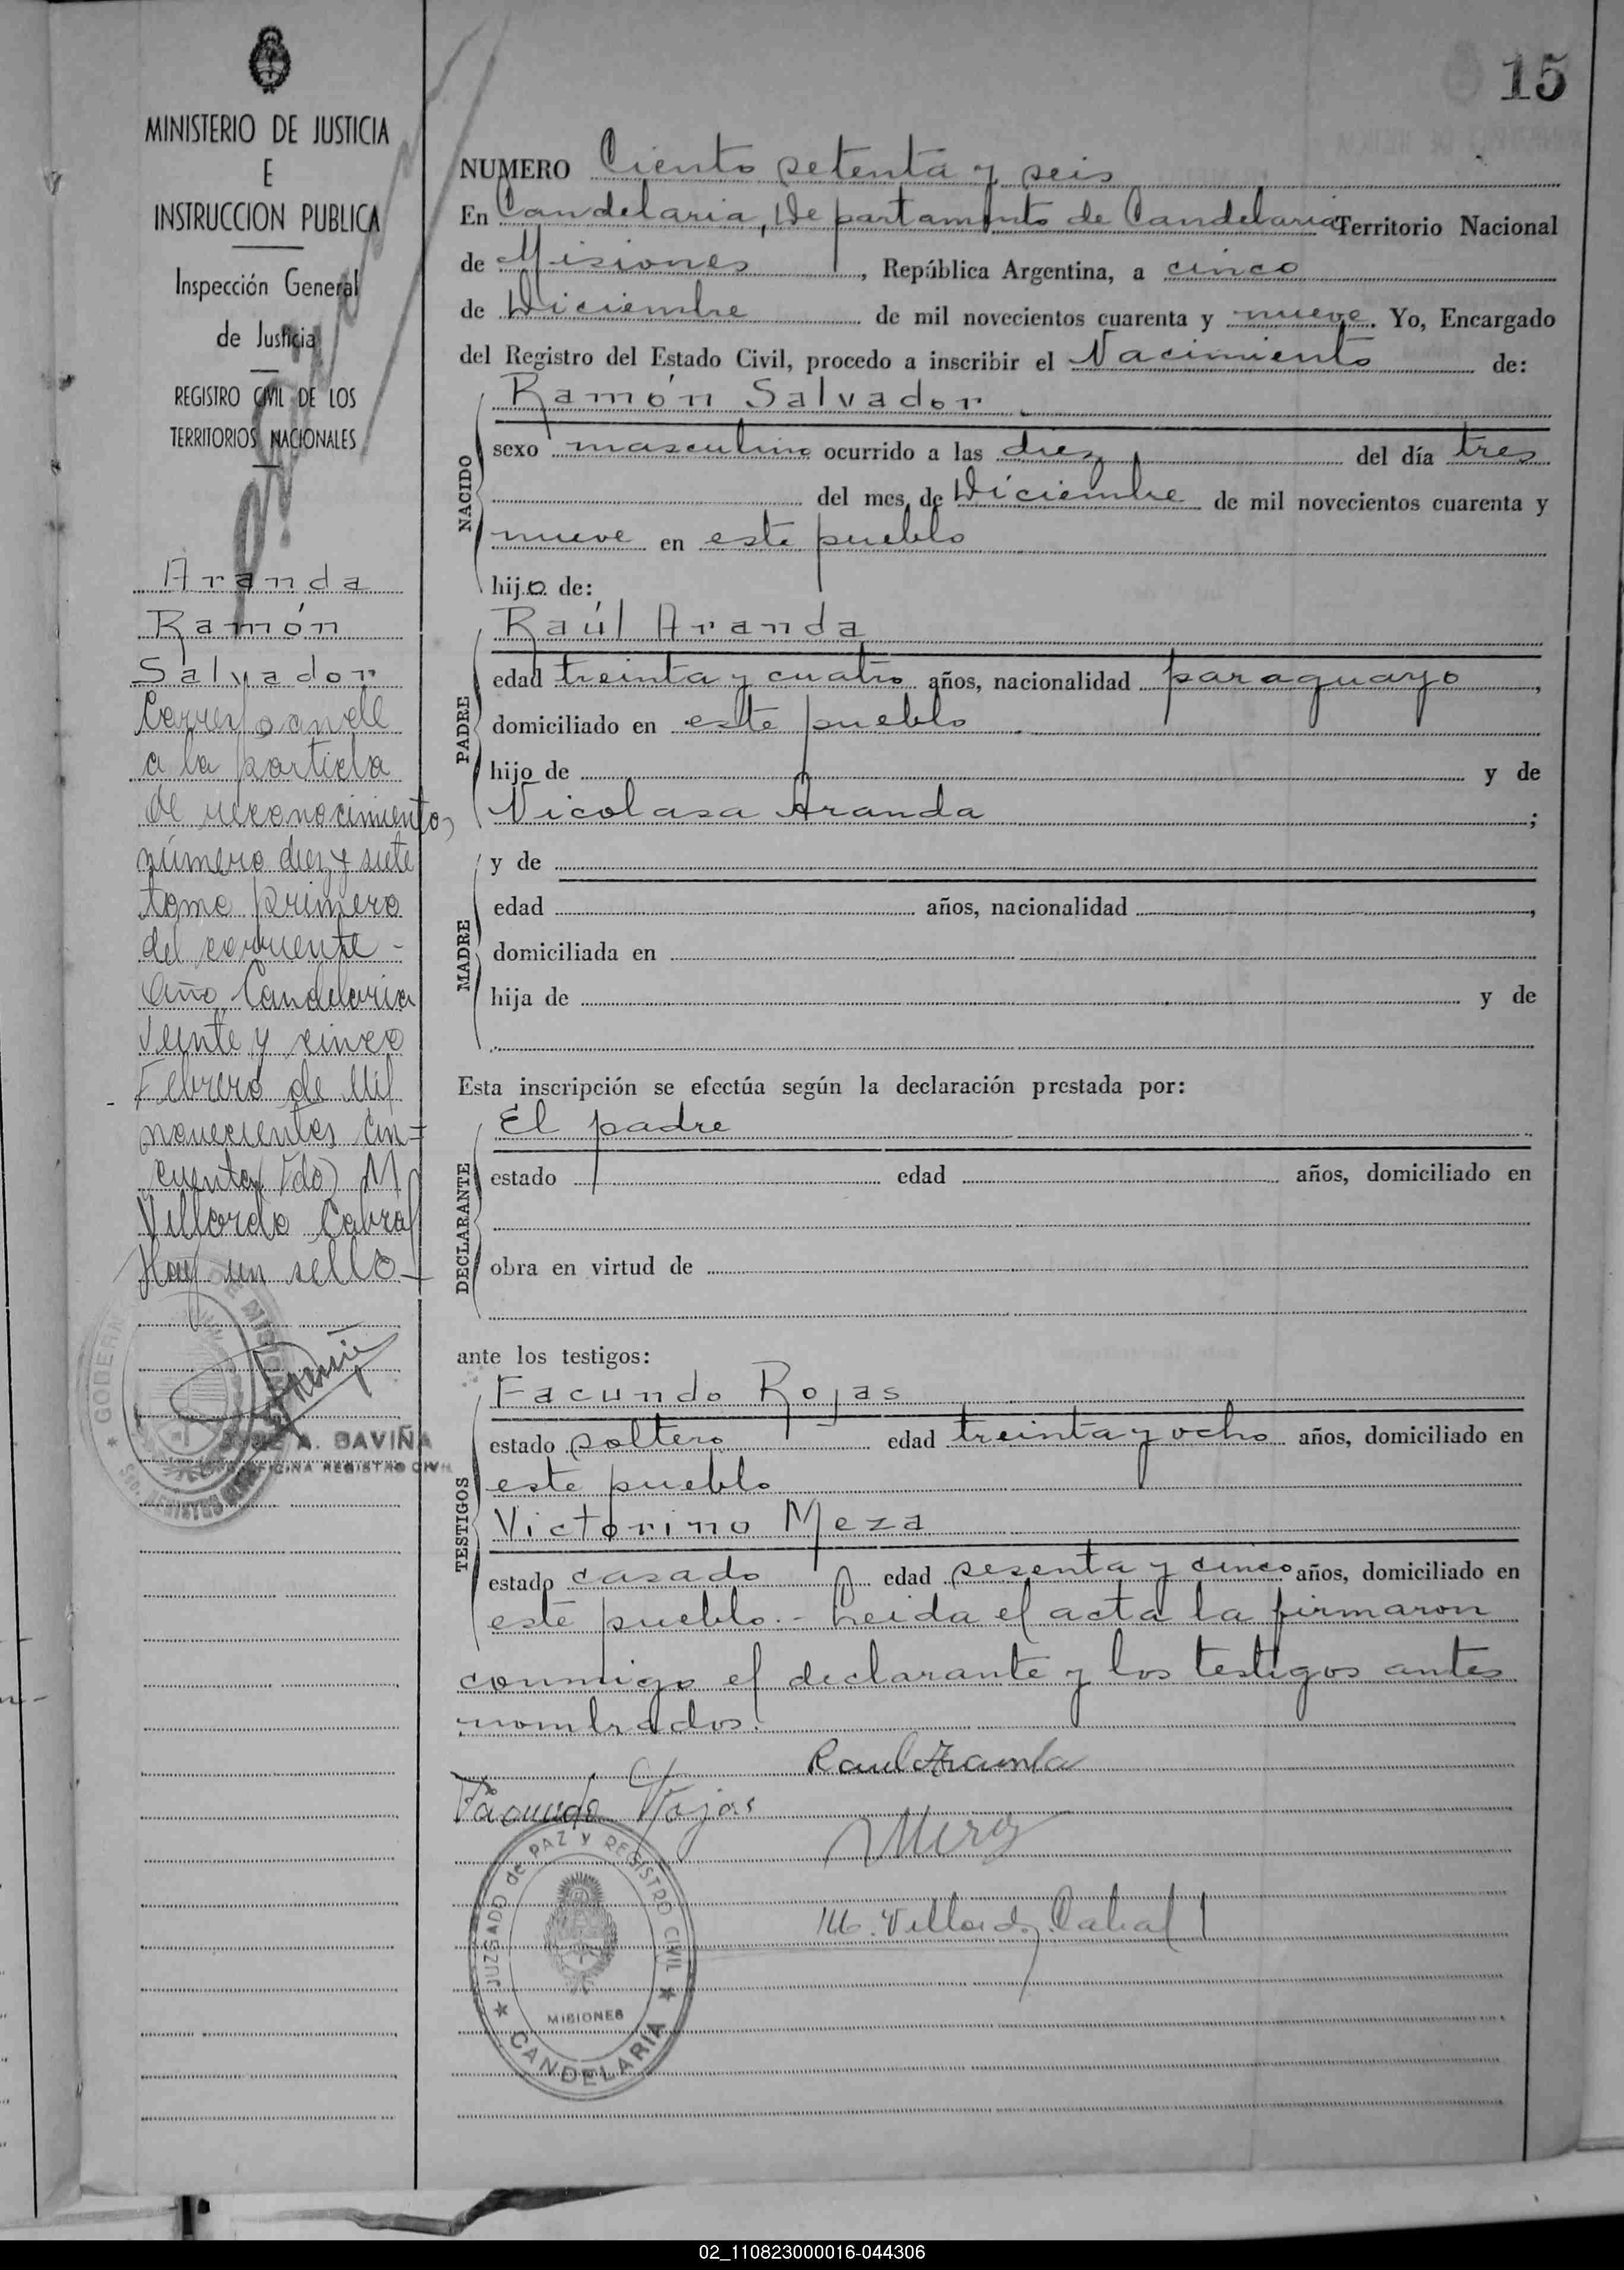 15
MINISTERIO DE JUSTICIA
E
INSTRUCCION PUBLICA
Inspección General
de Justicia
REGISTRO CIVIL DE LOS
TERRITORIOS NACIONALES
Aranda
Ramón
Salvador
Corresponde
a la partida
de reconocimiento
número diez y siete
tomo primero
del corriente -
Año Candelaria
Veinte y cinco
Febrero de Mil
novecientos cin-
cuenta (Fdo) M
Villordo Cabral
Hay un sello
JOSE A. GAVIÑA
OFICINA REGISTRO CIVIL
NUMERO Ciento setenta y seis
En Candelaria, Departamento de Candelaria Territorio Nacional
de Misiones, República Argentina, a cinco
de Diciembre de mil novecientos cuarenta y nueve. Yo, Encargado
del Registro del Estado Civil, procedo a inscribir el Nacimiento de:
NACIDO
Ramón Salvador
sexo masculino ocurrido a las diez del día tres
del mes de Diciembre de mil novecientos cuarenta y
nueve en este pueblo
hijo de:
PADRE
Raúl Aranda
edad treinta y cuatro años, nacionalidad paraguayo,
domiciliado en este pueblo
hijo de y de
Nicolasa Aranda;
MADRE
y de
edad años, nacionalidad,
domiciliada en
hija de y de
Esta inscripción se efectúa según la declaración prestada por:
DECLARANTE
El padre
estado edad años, domiciliado en
obra en virtud de
ante los testigos:
TESTIGOS
Facundo Rojas
estado soltero edad treinta y ocho años, domiciliado en
este pueblo
Victorino Meza
estado casado edad sesenta y cinco años, domiciliado en
este pueblo.- Leida el acta la firmaron
conmigo el declarante y los testigos antes
nombrados.
Raul Aranda
Facundo Rojas
M. Villordo Cabral
JUZGADO de PAZ y REGISTRO CIVIL
MISIONES
CANDELARIA
02_110823000016-044306